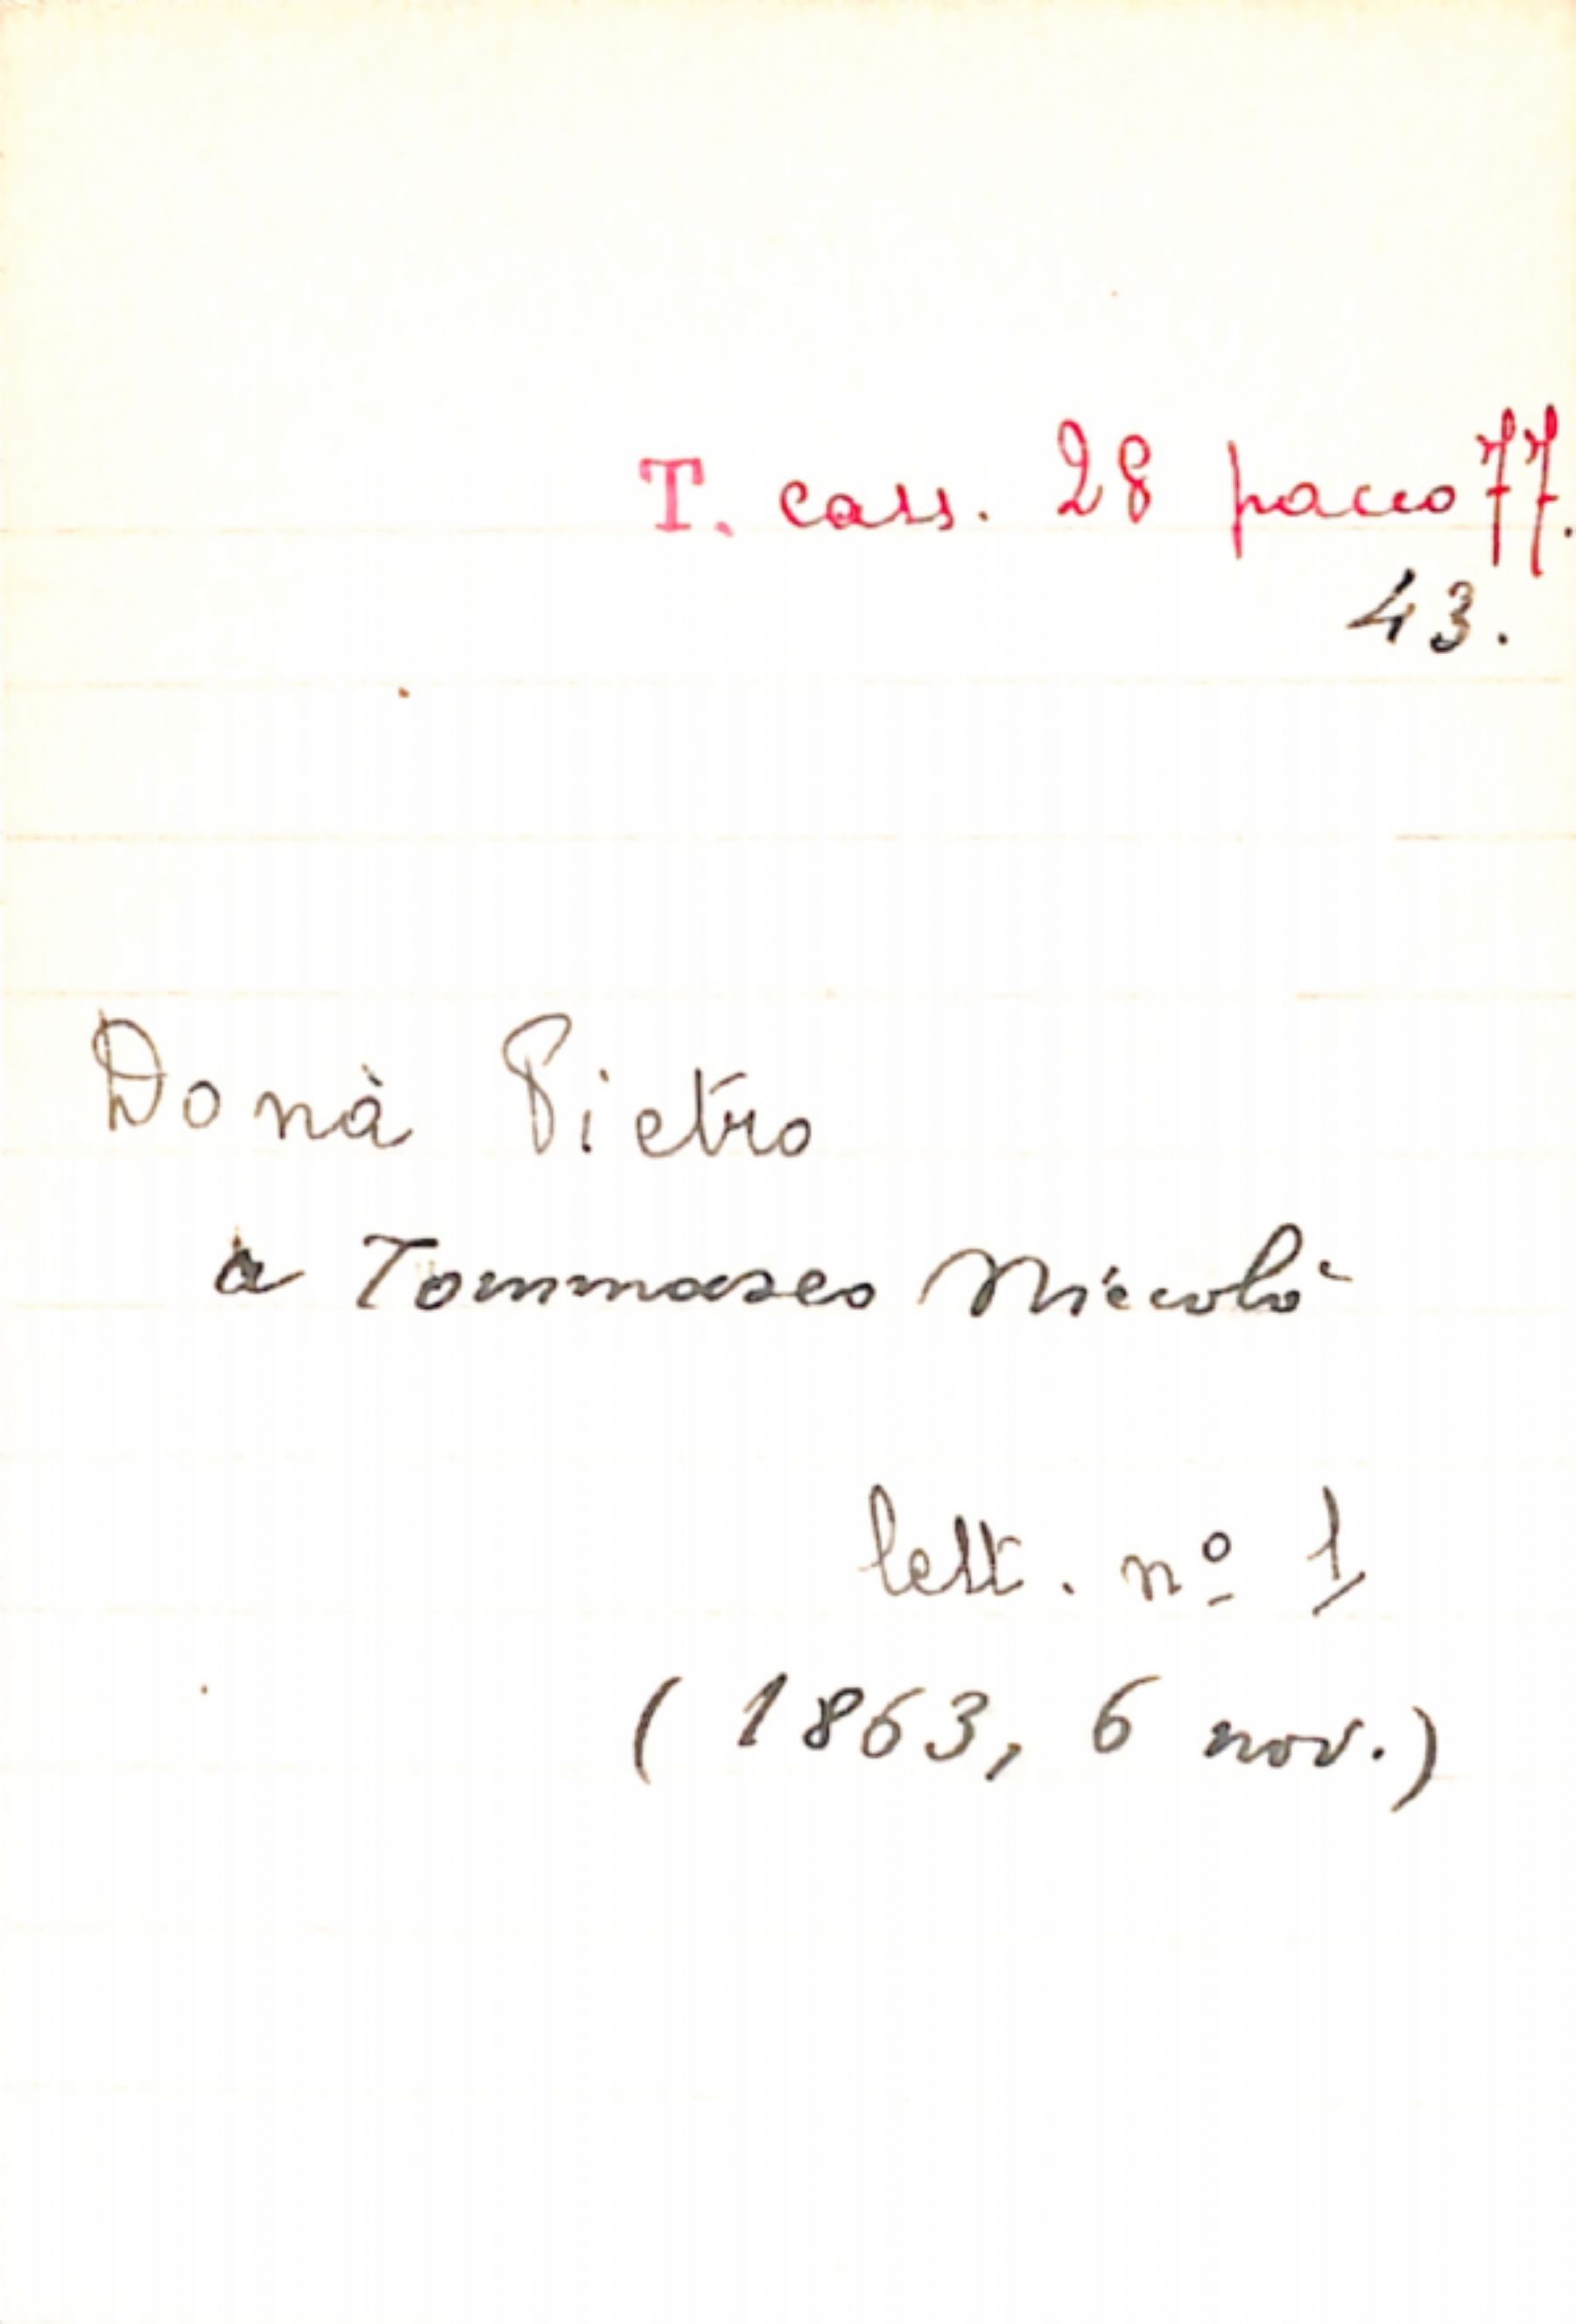 T. cass. 28 pacco 77.
43.
Donà Pietro
a Tommaseo Niccolò
lett. nº 1
(1863, 6 nov.)